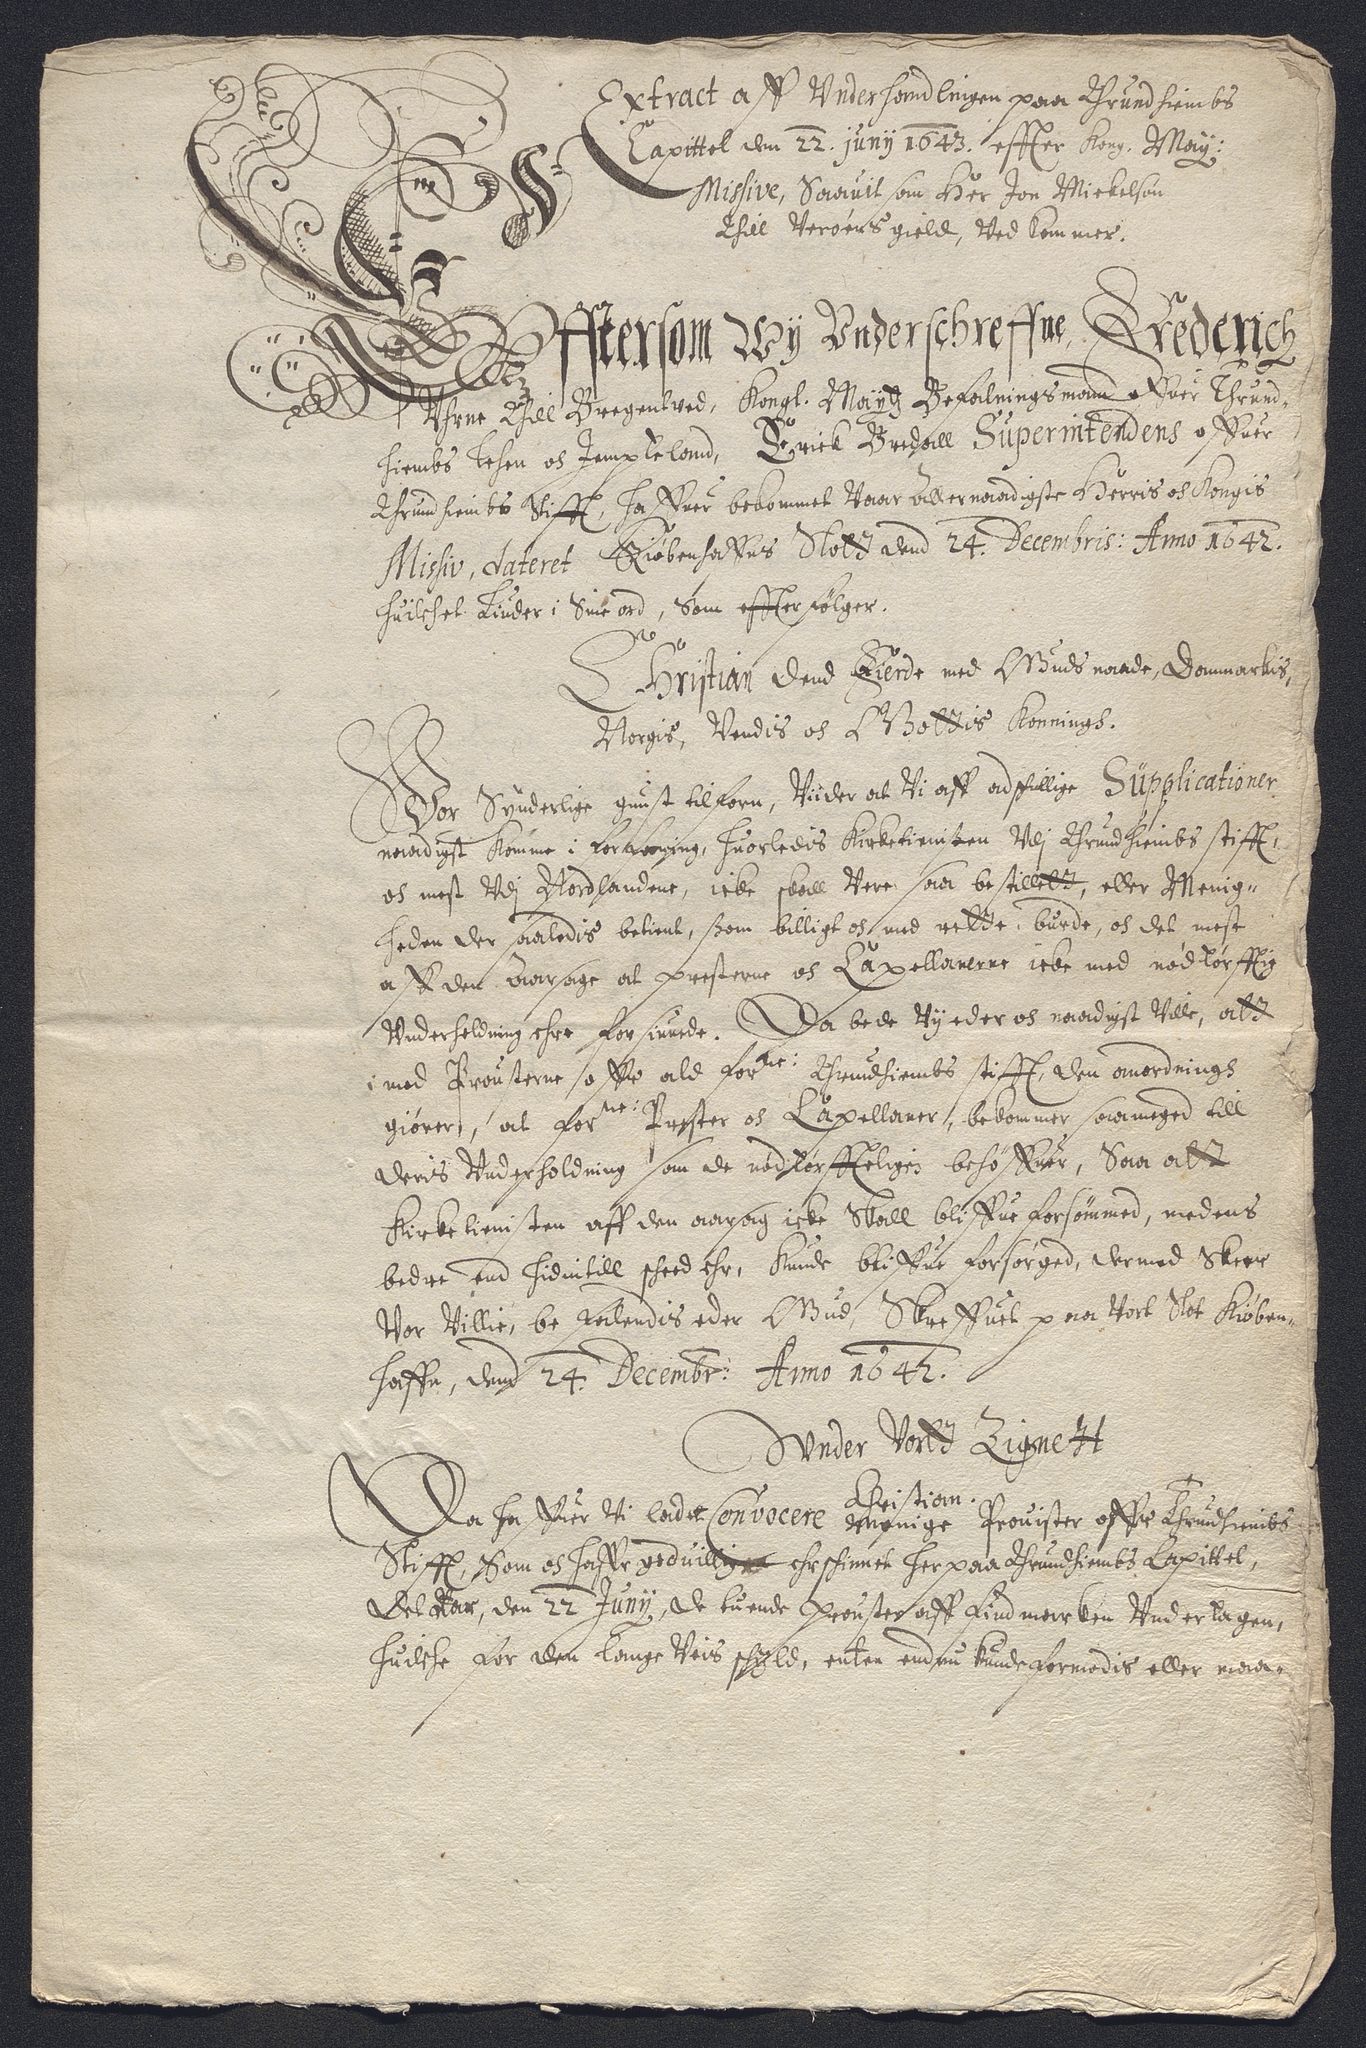 Extract aff Underhandlingen paa Thrundhiembs
Capittel den 22. juny 1643. effter Kong. May:
Missive, Saauit som Her Jon Mickelsøn
Till Verøens gield, Ved kommer.
Efftersom Wy Underschreffne, Frederich
Uhrne Till Bregentved, Kongl. Maytz Befalningsmand offuer Thrund-
hiembs Lehen oc Jempteland, Erick Bredall Superintendens offuer
Thrundhiembs Stifft, haffuer bekommet Vaar allernaadigste Herris oc Kongis
Missiv, dateret Kiøbenhaffns Slott dend 24. Decembris: Anno 1642.
huilchet Liuder i Sine ord, Som effterfølger.
Christian dend Fierde med Guds naade, Danmarkis,
Norgis, Vendis oc Gottis Konningh.
Vor Synderlige gunst tilforn, Viider at Vi aff adskillige Supplicationer
naadigst komme i forfaring, huorledis Kirketienisten Udj Thrundhiembs stifft,
oc mest Udj Nordlandene, icke skall Vere saa bestillett, eller Menig-
heden der saaledis betient, som billigt oc med rette burde, oc det mest
aff den aarsage at presterne oc Capellanerne icke med nødtørfftig
Underholdning ehre forsiunede. Da bede Vy eder oc naadigst Ville, att
i med Prousterne offr ald forne: Thrundhiembs stifft, den anordningh
giører, at forne: Prester oc Capellaner, bekommer saameged till
deris Underholdning som de nødtørffteligen behøffuer, Saa att
Kirketienisten aff den aarsag icke Skall bliffue forsømmed, medens
bedre end hidintill scheed ehr, kunde bliffue forsørged, dermed Skeer
Vor Villie, befalendis eder Gud, Skreffuet paa Vort Slot Kiøben-
haffn, dend 24. Decembr: Anno 1642.
Under Vortt Zignett
Christian.
Da haffuer Vi ladet Convocere menige Prouister offr Thrundhiembs
Stifft, Som oc haffr goduilligen ehrschinnet her paa Thrundhiembs Capittel,
Det Aar, den 22 Juny, de tuende Prouster aff Findmarken Undertagen,
huilche for den lange Veis schyld, enten endnu kunde formodis eller maa-